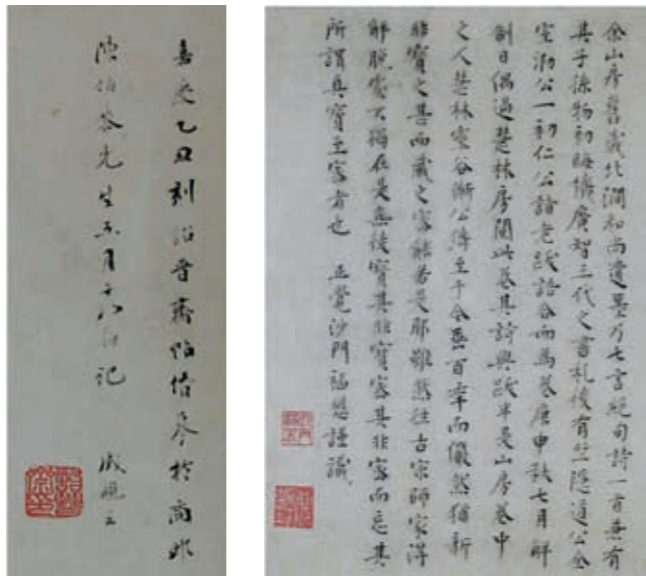 余山房舊藏北澗和尚遺墨乃七言絕句詩一首兼有
其子孫物初晦機廣智三代之書札後有竺隱道公全
室泐公一初仁公諸老跋語合而為卷庚申秋七月解
制日偶過楚林房閱此卷其詩與跋半是山房卷中
之人楚林靈谷漸公傳至于今無百年而儼然猶新
非寶之甚而藏之密能若是耶雖然往古宗師家得
解脫處不獨在是無後寶其非寶密其非密而忘其
所謂真寶至密者也 正覺沙門福懋謹識
嘉慶乙丑刻詒晉齋帖借
陳伯恭先生五月十八日記 成親王